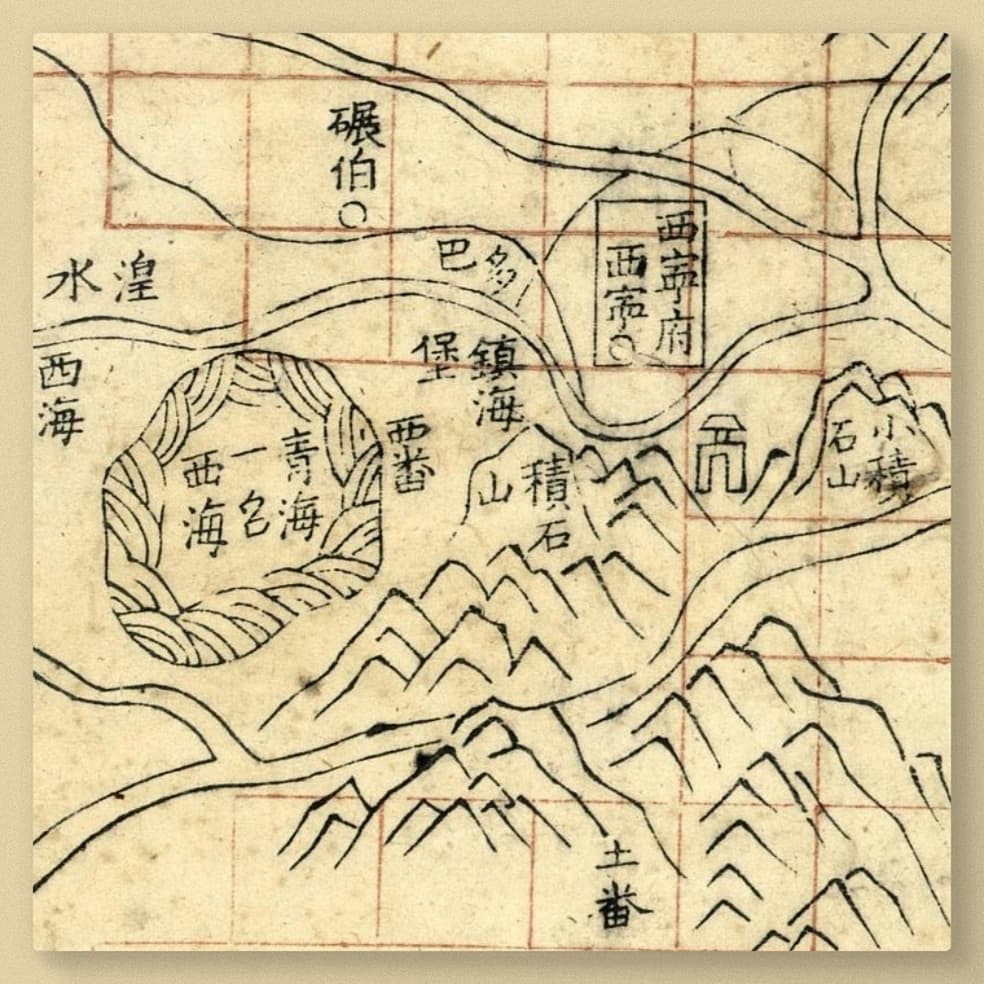 碾伯
西寧府
西寧
多巴
湟水
鎮海
堡
西海
西番
青海
一名
西海
積石
山
小積
石山
土番